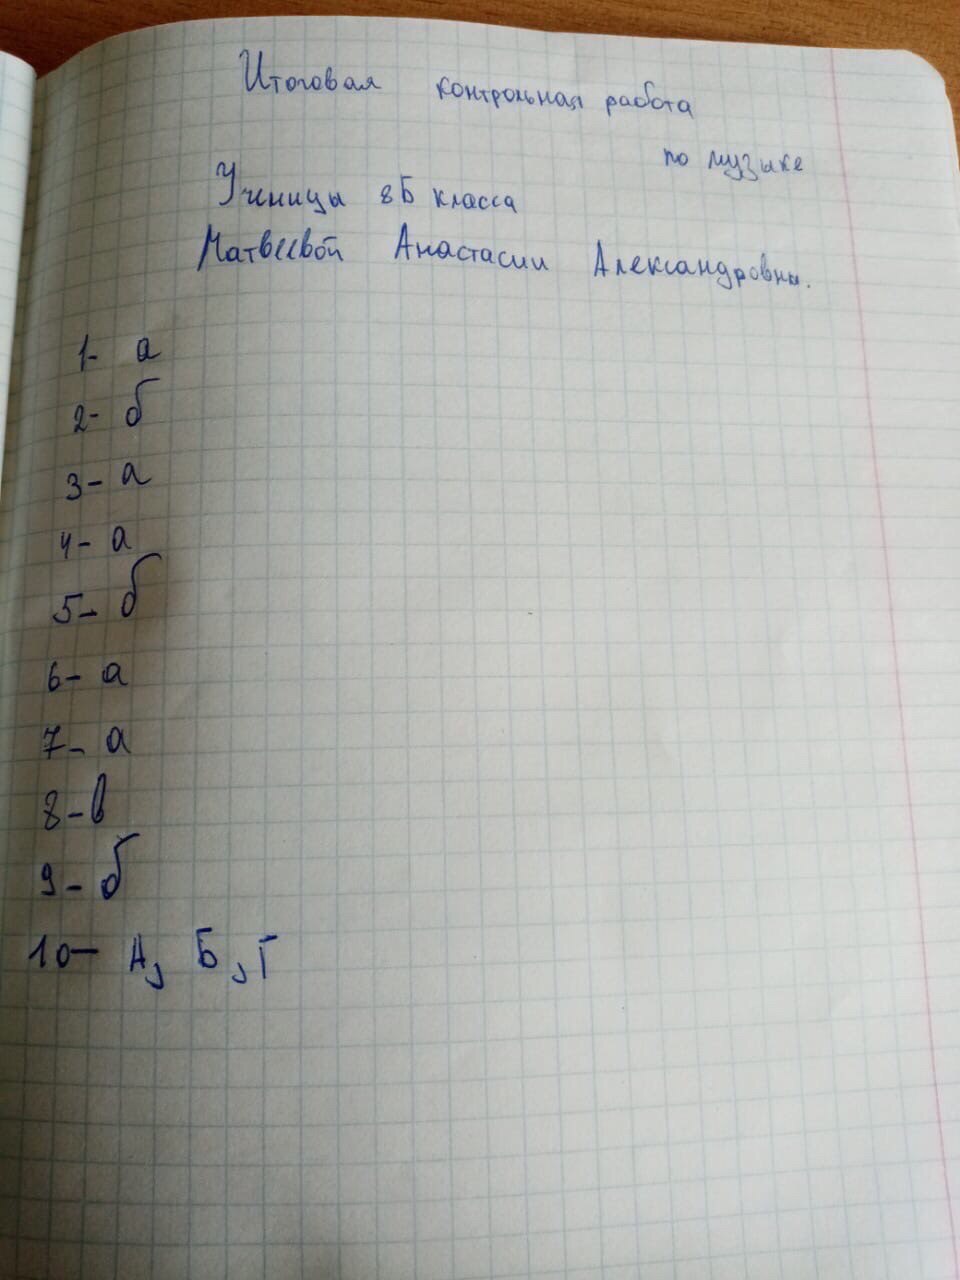 Итоговая контрольная работа
по музыке
Ученицы 8Б класса
Матвеевой Анастасии Александровны.
1- а
2- б
3- а
4- а
5- б
6- а
7- а
8- в
9- б
10- А, Б, Г